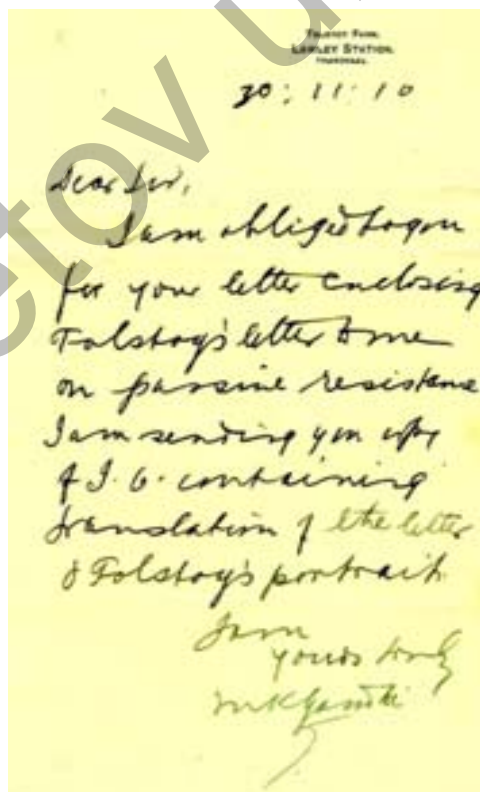 TOLSTOY FARM,
LAWLEY STATION,
TRANSVAAL
30: 11: 10
Dear Sir,
I am obliged to you
for your letter enclosing
Tolstoy's letter to me
on passive resistance
I am sending you copy
of I. O. containing
translation of the letter
& Tolstoy's portrait.
I am
yours truly
MKGandhi
etov u